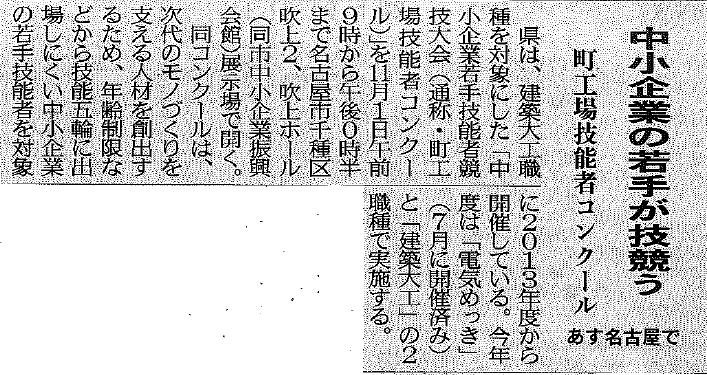 中小企業の若手が技競う
町工場技能者コンクール
あす名古屋で
県は、建築大工職
種を対象にした「中
小企業若手技能者競
技大会（通称・町工
場技能者コンクー
ル）」を11月1日午前
9時から午後0時半
まで名古屋市千種区
吹上2、吹上ホール
（同市中小企業振興
会館）展示場で開く。
同コンクールは、
次代のモノづくりを
支える人材を創出す
るため、年齢制限な
どから技能五輪に出
場しにくい中小企業
の若手技能者を対象
に2013年度から
開催している。今年
度は「電気めっき」
（7月に開催済み）
と「建築大工」の2
職種で実施する。